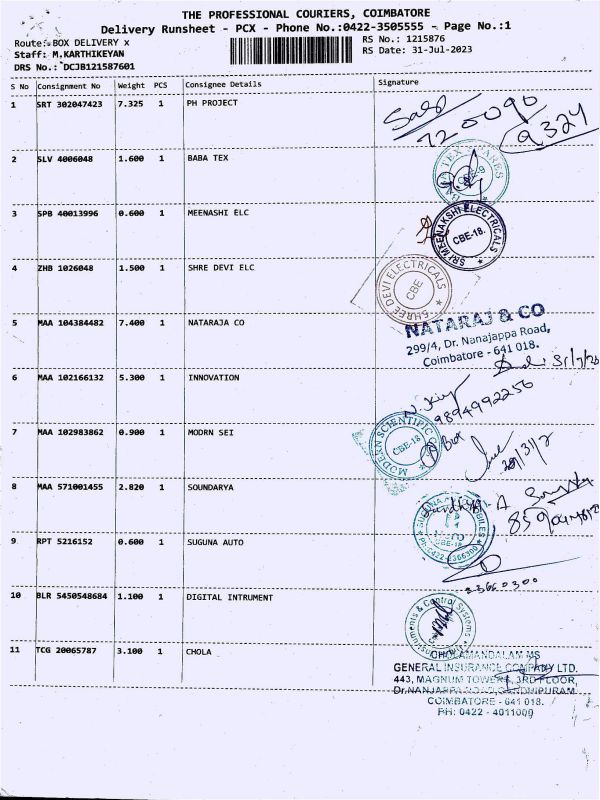 THE PROFESSIONAL COURIERS, COIMBATORE
Delivery Runsheet - PCX - Phone No.:0422-3505555 - Page No.:1
Route: BOX DELIVERY x
RS No.: 1215876
Staff: M.KARTHIKEYAN
RS Date: 31-Jul-2023
DRS No.: DCJB121587601
S No Consignment No Weight PCS Consignee Details Signature
1 SRT 302047423 7.325 1 PH PROJECT
720090
9324
2 SLV 4006048 1.600 1 BABA TEX
TEX SPARES
CBE-9
3 SPB 40013996 0.600 1 MEENASHI ELC
SRI MEENAKSHI ELECTRICALS
CBE-18.
4 ZHB 1026048 1.500 1 SHRE DEVI ELC
SHREE DEVI ELECTRICALS
CBE
5 MAA 104384482 7.400 1 NATARAJA CO
NATARAJ & CO
299/4, Dr. Nanajappa Road,
Coimbatore - 641 018.
6 MAA 102166132 5.300 1 INNOVATION
9894992256
7 MAA 102983862 0.900 1 MODRN SEI
MODERN SCIENTIFIC
CBE-18
8 MAA 571001455 2.820 1 SOUNDARYA
9 RPT 5216152 0.600 1 SUGUNA AUTO
10 BLR 5450548684 1.100 1 DIGITAL INTRUMENT
Instruments & Control Systems
11 TCG 20065787 3.100 1 CHOLA
CHOLAMANDALAM MS
GENERAL INSURANCE COMPANY LTD.
443, MAGNUM TOWERS, 3RD FLOOR,
Dr.NANJAPPA ROAD, GANDHIPURAM
COIMBATORE - 641 018.
PH: 0422 - 4011000